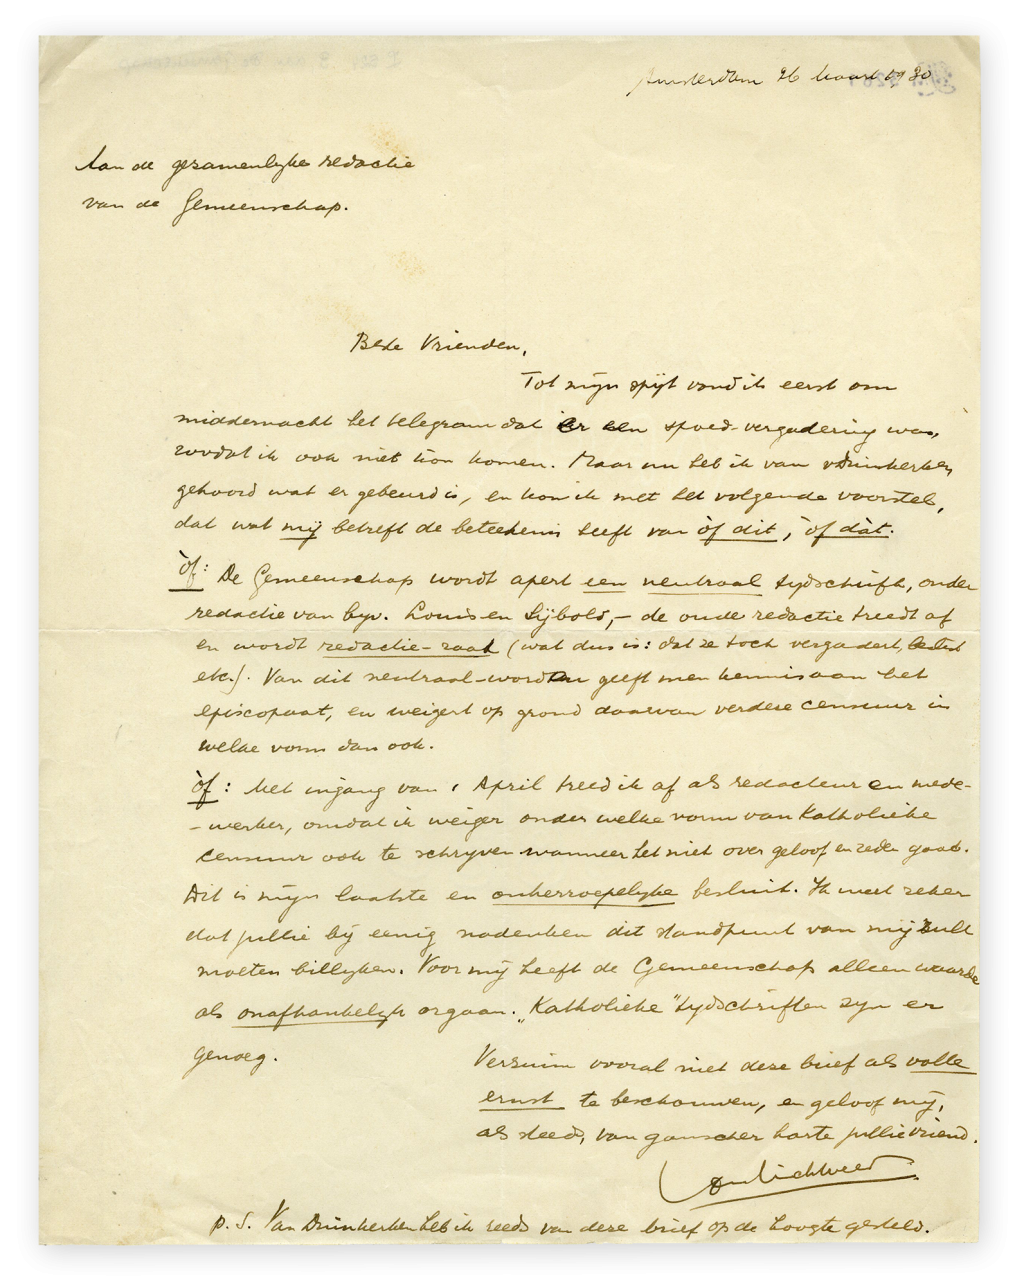 Amsterdam 26 Maart 1930
Aan de gezamenlyke redactie
van de Gemeenschap.
Beste Vrienden,
Tot mijn spijt vond ik eerst om
middernacht het telegram dat er een spoed-vergadering was,
zoodat ik ook niet kon komen. Maar nu heb ik van v Duinkerken
gehoord wat er gebeurd is, en kom ik met het volgende voorstel,
dat wat mij betreft de beteekenis heeft van òf dit, òf dàt.
òf: De Gemeenschap wordt apert een neutraal tydschrift, onder
redactie van byv. Louis en Sijbold, – de oude redactie treedt af
en wordt redactie-raad (wat dus is: dat ze toch vergadert,
etc.). Van dit neutraal-worden geeft men kennis aan het
episcopaat, en weigert op grond daarvan verdere censuur in
welke vorm dan ook.
òf: Met ingang van 1 April treed ik af als redacteur en mede-
-werker, omdat ik weiger onder welke vorm van Katholieke
censuur ook te schryven wanneer het niet over geloof en zeden gaat.
Dit is mijn laatste en onherroepelyke besluit. Ik weet zeker
dat jullie bij eenig nadenken dit standpunt van mij zult
moeten billyken. Voor mij heeft de Gemeenschap alleen waarde
als onafhankelyk orgaan. „Katholieke" tydschriften zyn er
genoeg.
Verzuim vooral niet deze brief als volle
ernst te beschouwen, en geloof mij,
als steeds, van ganscher harte jullie vriend.
p.s. Van Duinkerken heb ik reeds van deze brief op de hoogte gesteld.